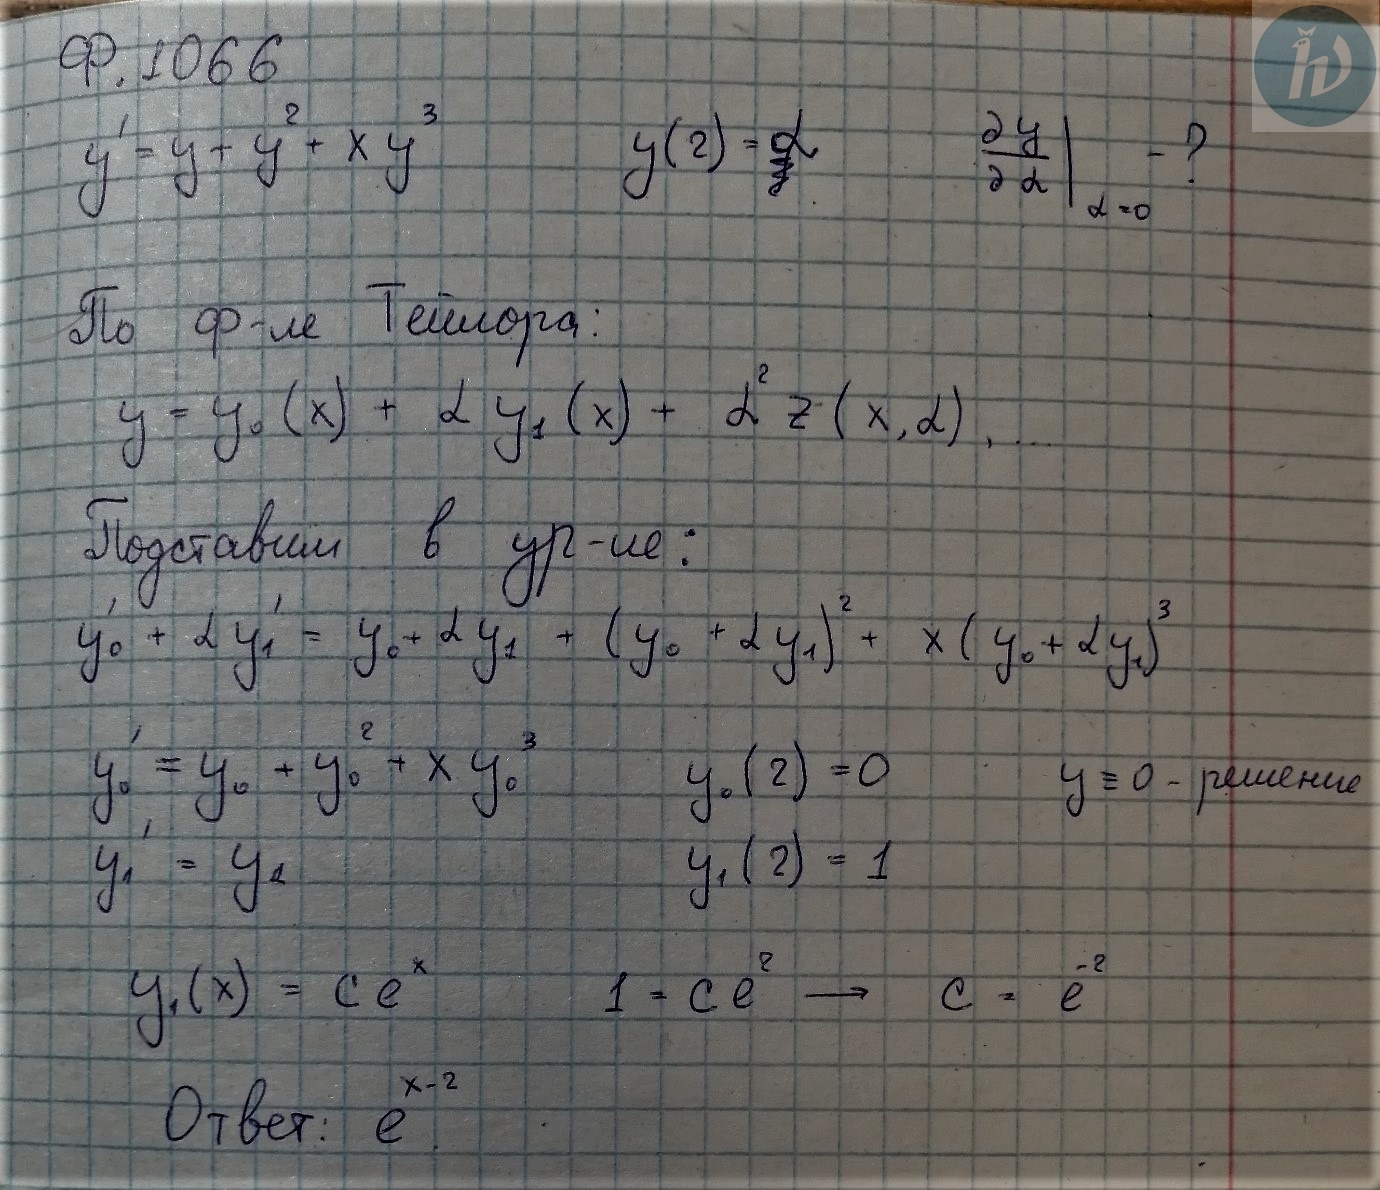 Ф. 1066
y' = y + y² + xy³ y(2) = α ∂y/∂α |α=0 - ?
По ф-ле Тейлора:
y = y₀(x) + αy₁(x) + α²z(x,α), ...
Подставим в ур-ие:
y₀' + αy₁' = y₀ + αy₁ + (y₀ + αy₁)² + x(y₀ + αy₁)³
y₀' = y₀ + y₀² + xy₀³ y₀(2) = 0 y ≡ 0 - решение
y₁' = y₁ y₁(2) = 1
y₁(x) = ce^x 1 = ce² → c = e⁻²
Ответ: e^(x-2).